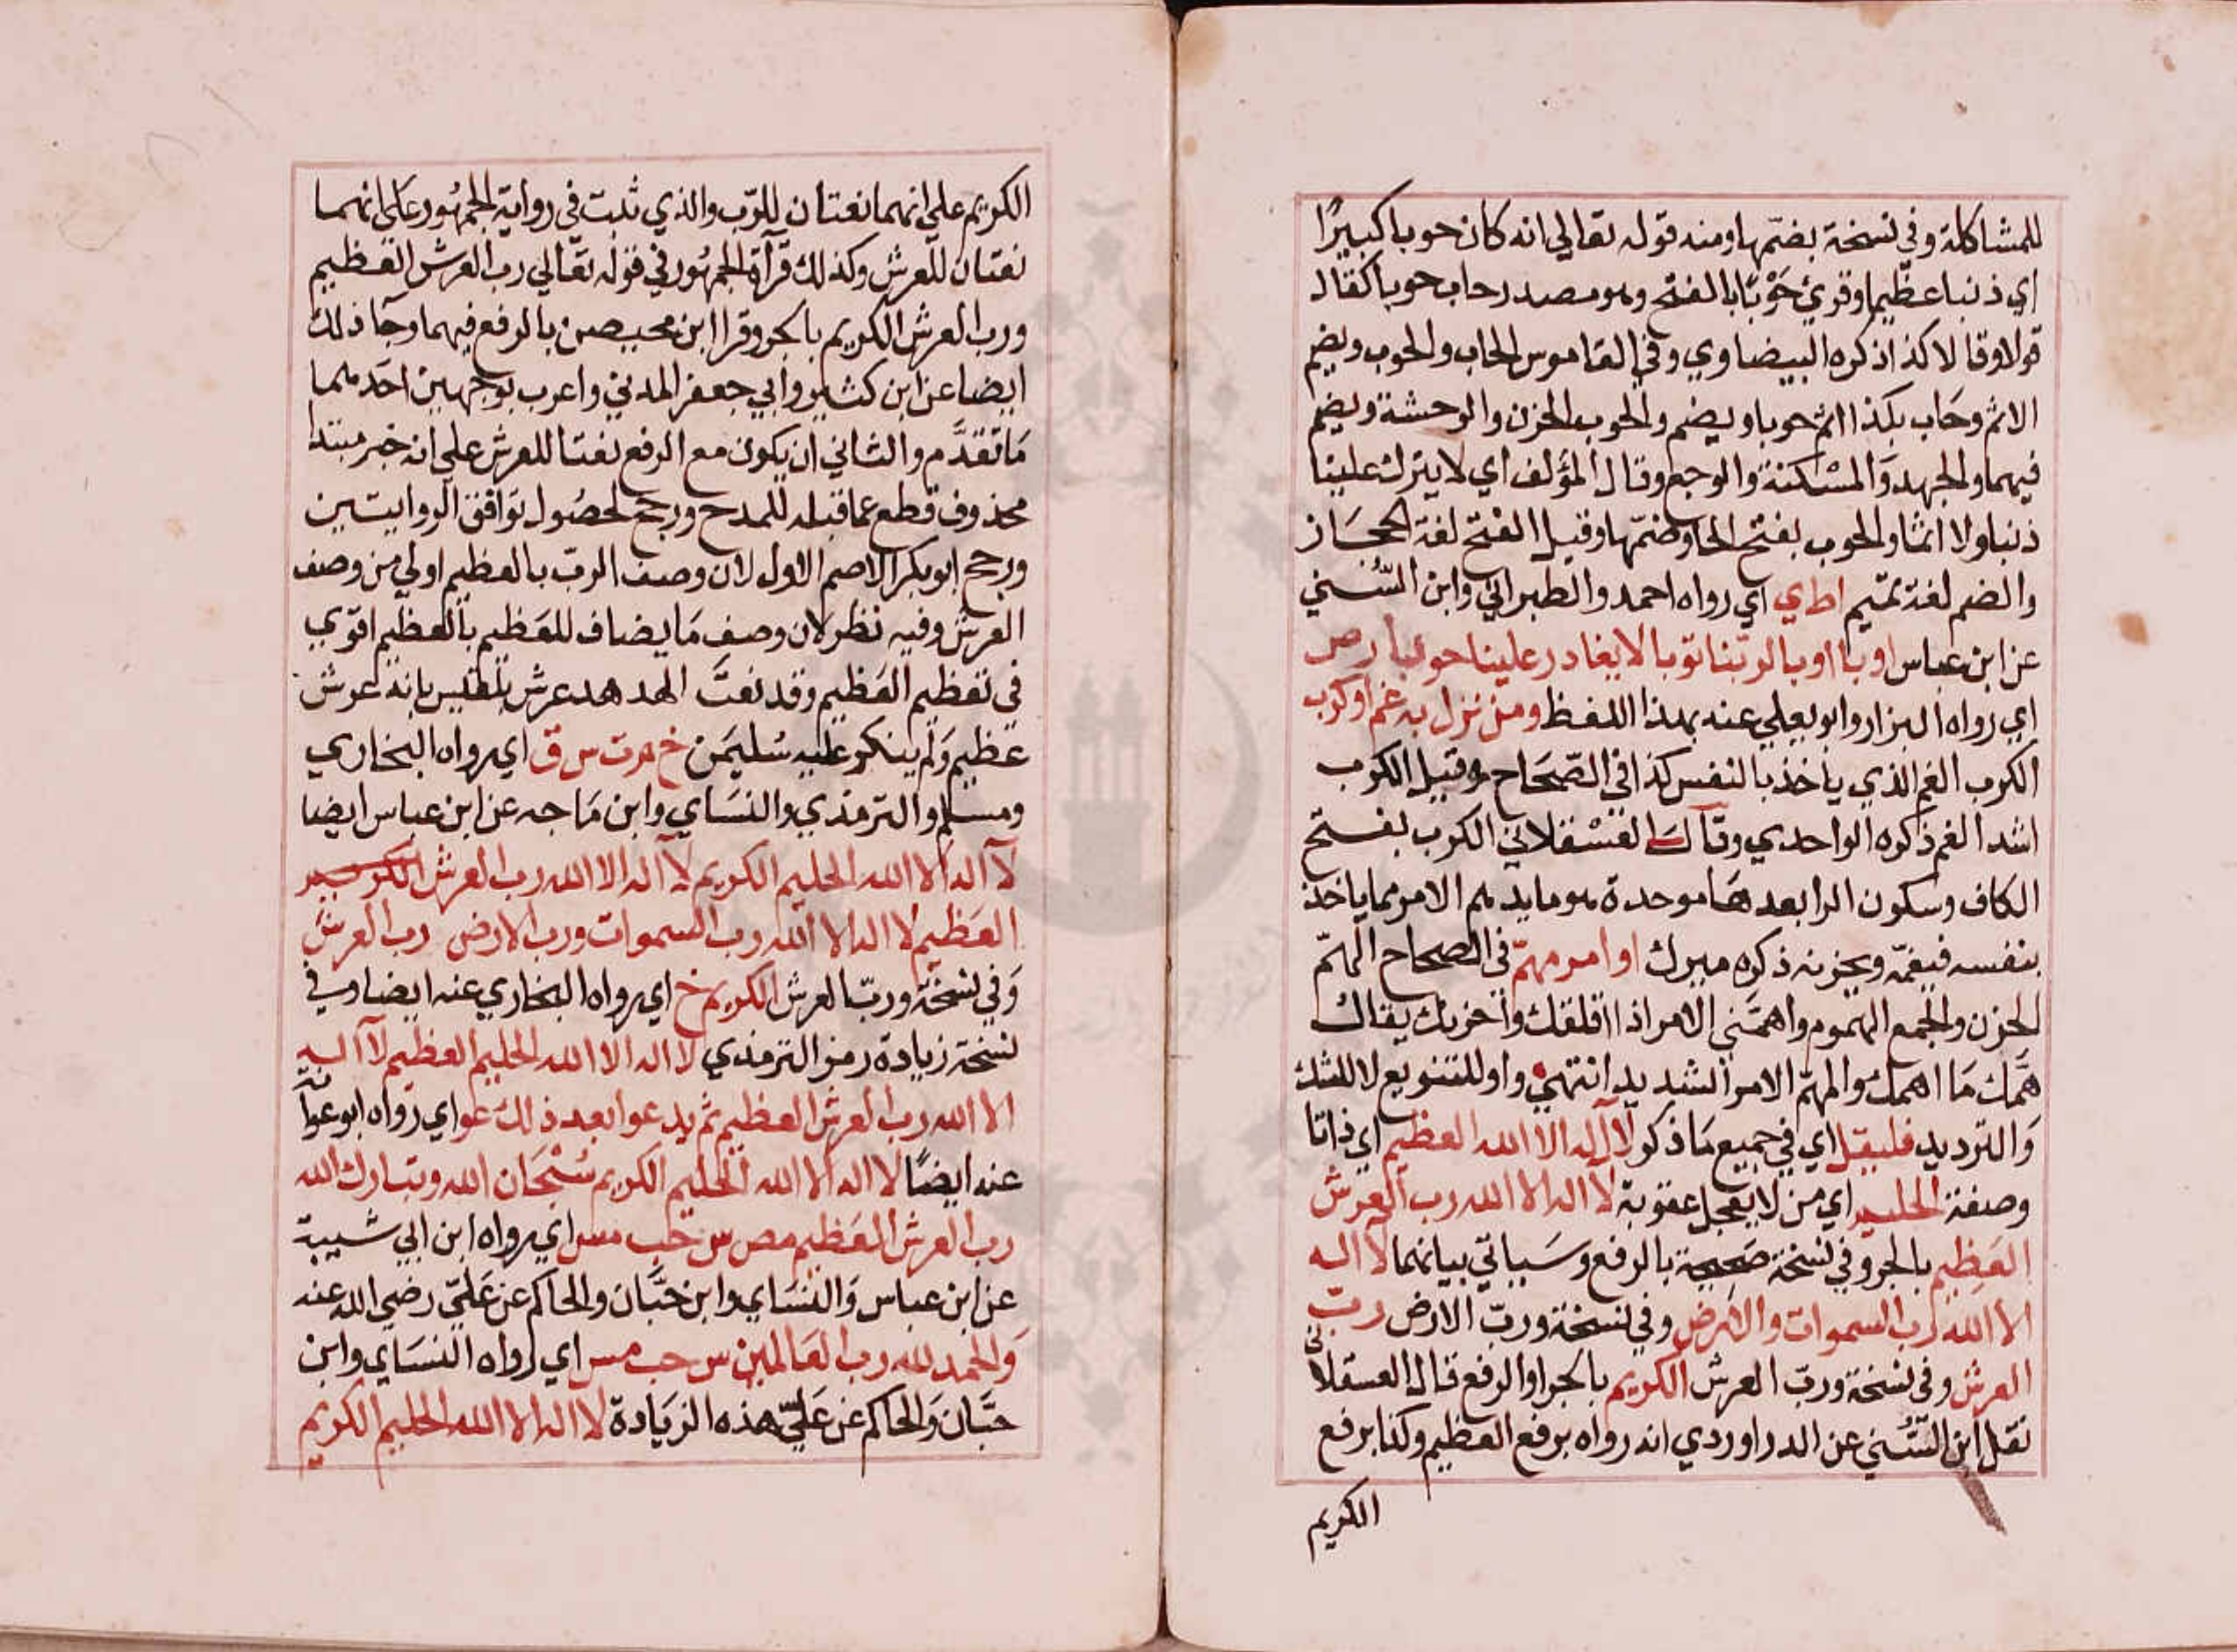 للمشاكلة وفي نسخة بضمها ومنه قوله تعالي انه كان حوبا كبيرًا
اي ذنبا عظيما وقرئ حَوْبًا بالفتح وهو مصدر حاب حوبا كقال
قولا وقالا كذا ذكره البيضاوي وفي القاموس الحاب والحوب ويضم
الاثم وحاب بكذا اثم حوبا ويضم والحوب الحزن والوحشة ويضم
فيهما والجهد والمسْكنة والوجع وقال المؤلف اي لا يترك علينا
ذنبا ولا اثما والحوب بفتح الحا وضمّها وقيل الفتح لغة الحجاز
والضم لغة تميم اط ي اي رواه احمد والطبراني وابن السُّني
عن ابن عباس اوبا اوبا لربنا توبا لا يغادر علينا حوبا ر ص
اي رواه البزار وابو يعلي عنه بهذا اللفظ ومن نزل به غم او كرب
الكرب الغم الذي ياخذ بالنفس كذا في الصّحَاح وقيل الكرب
اشد الغم ذكره الواحدي وقال العَسْقلاني الكرب بفتح
الكاف وسكون الرا بعدها موحدة هو ما يدهم الامر مما ياخذ
بنفسه فيغمّه ويحزنه ذكره ميرك او امر مهمّ في الصحاح الهمّ
الحزن والجمع الهموم واهمَّني الامر اذا اقلقك واحزنك يقال
همَّك مَا اهمك والمهمّ الامر الشديد انتهي واو للتنويع لا للشك
وَالترديد فليقل اي في جميع مَا ذكر لا اله الا الله العظيم اي ذاتا
وصفة الحليم اي من لا يعجل عقوبة لا اله الا الله رب العرش
العَظِيم بالجر وفي نسخة صَحيحة بالرفع وسَياتي بيانهما لا اله
الا الله رب السموات والارض وفي نسخة ورب الارض ربّ
العرش وفي نسخة وربّ العرش الكريم بالجر او الرفع قال العسقلاني
نقل ابن السُّني عن الدراوردي انه رواه برفع العظيم وكذا برفع
الكريم
الكريم علي انهما نعتان للرّب والذي ثبت في رواية الجمهُور عَلي انهما
نعتان للعرش وكذلك قرآة الجمهُور في قوله تعَّالي رب العرش العظيم
ورب العرش الكريم بالجر وقرا ابن محيصن بالرفع فيهما وجَآ ذلك
ايضا عن ابن كثير وابي جعفر المدني واعرب بوجهين احَدهما
مَا تقدَّم والثاني ان يكون مع الرفع نعتا للعرش علي انه خبر مبتدا
محذوف قطع عما قبله للمدح ورجح لحصُول توَافق الروايتين
ورجح ابو بكر الاصم الاول لان وصف الربّ بالعظيم اولي من وصف
العرش وفيه نظر لان وصف مَا يضاف للعَظيم بالعظيم اقوي
في تعظيم العَظيم وقد نعتَّ الهدهد عرش بلقيس بانه عرش
عَظيم وَلم ينكر عليه سُليمَن خ م ت س ق اي رواه البخاري
ومسلم والترمذي والنسَاي وابن مَاجه عن ابن عباس ايضا
لا اله الا الله الحليم الكريم لا اله الا الله رب العرش الكريم
العَظيم لا اله الا الله رب السموات ورب الارض رب العرش
وَفي نسخة وربّ العرش الكريم خ اي رواه البخاري عنه ايضا وفي
نسخة زيادة رمز الترمذي لا اله الا الله الحليم العظيم لا اله
الا الله رب العرش العظيم ثم يدعو ابعد ذلك عو اي رواه ابو عوانة
عنه ايضًا لا اله الا الله الحليم الكريم سُبْحَان الله وتبارك الله
رب العرش العَظيم مص س حب مس اي رواه ابن ابي شيبة
عن ابن عباس وَالنسَاي وابن حبَّان والحاكم عن عَليّ رضي الله عنه
وَالحمد لله رب العَالمين س حب مس اي رواه النسَاي وابن
حبَّان وَالحاكم عن عَليّ هذه الزيَادة لا اله الا الله الحليم الكريم